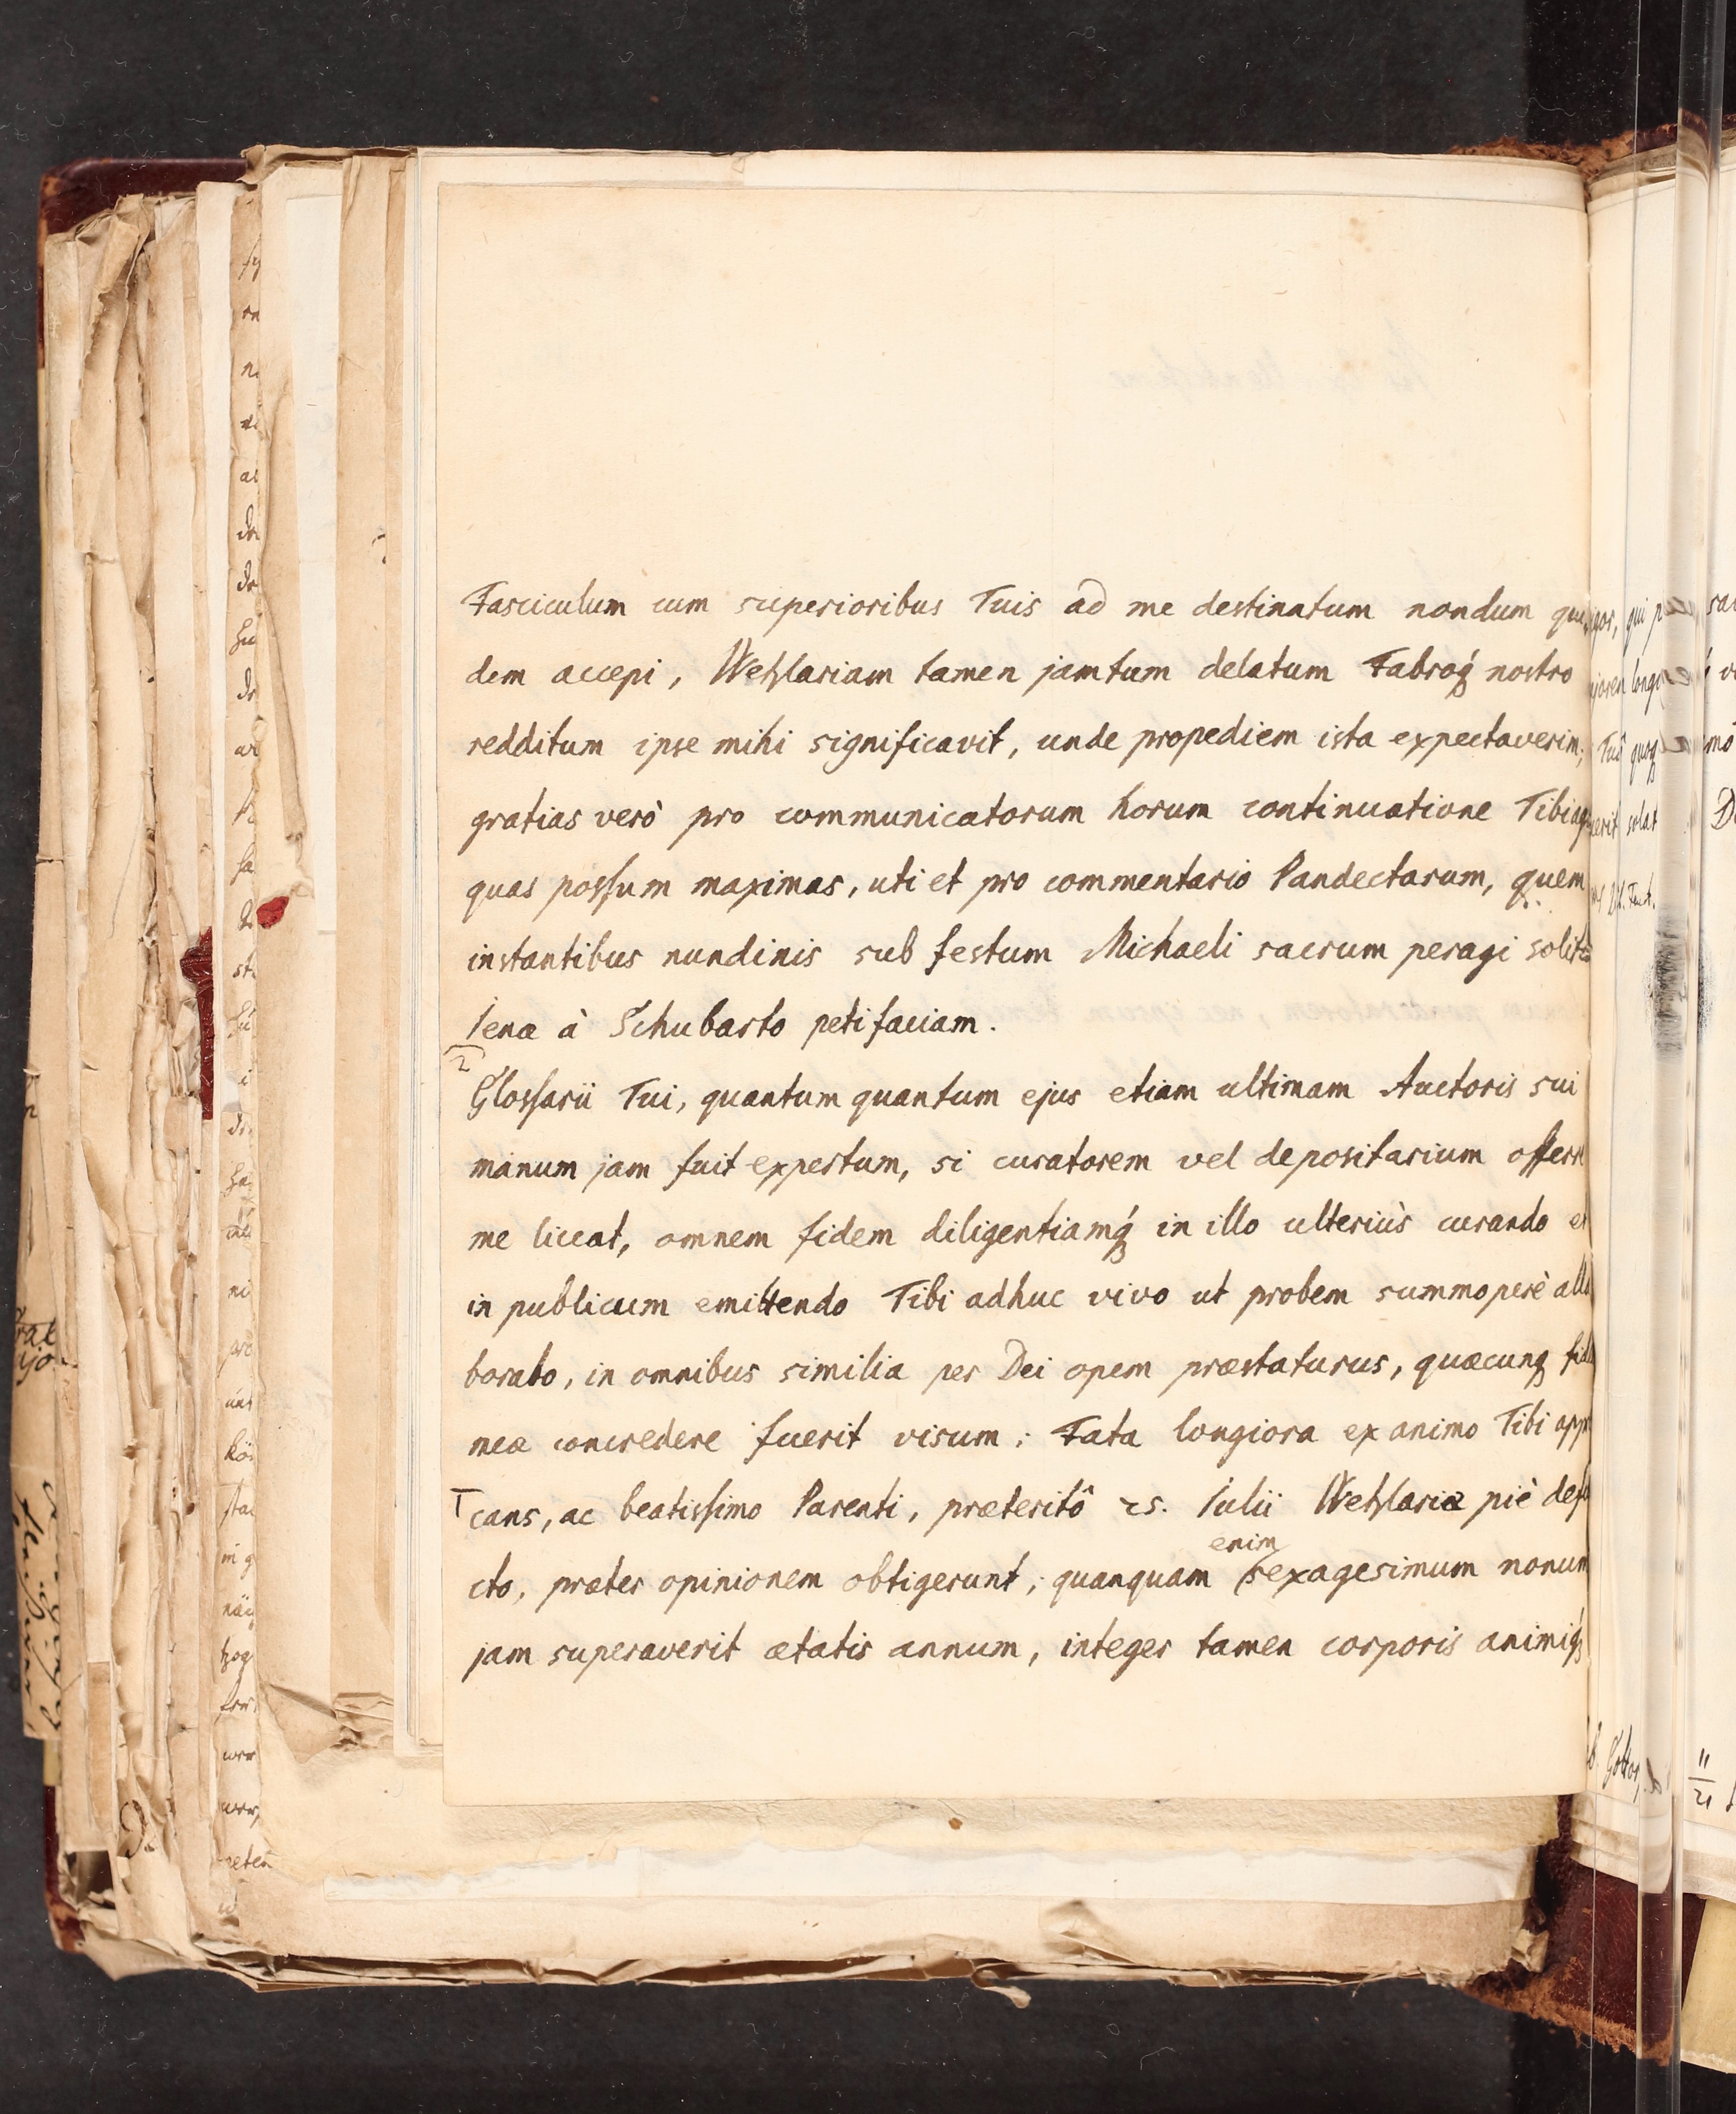 Fasciculum cum superioribus Tuis ad me destinatum nondum
dem accepi, Wetzlariam tamen jamtum delatum Fabroq́ nostro
redditum ipse mihi significavit, unde propediem ista expectaverim;
gratias verò pro communicatorum horum continuatione Tibi
quas possum maximas, uti et pro commentario Pandectarum, quem
instantibus nundinis sub festum Michaeli sacrum peragi
Jenæ à Schubarto peti faciam.
2
Glossarii Tui, quantum quantum ejus etiam ultimam Auctoris sui
manum jam fuit expertum, si curatorem vel depositarium
me liceat, omnem fidem diligentiamq́ in illo ulteriùs curando et
in publicum emittendo Tibi adhuc vivo ut probem summoperè
borabo, in omnibus similia per Dei opem præstaturus, quæcunq
meæ concredere fuerit visum; Fata longiora ex animo Tibi
cans, ac beatissimo Parenti, præteritô 25. Julii Wetzlariæ piè
enim
cto, præter opinionem obtigerunt; quanquam sexagesimum nonum
jam superaverit ætatis annum, integer tamen corporis animiq́